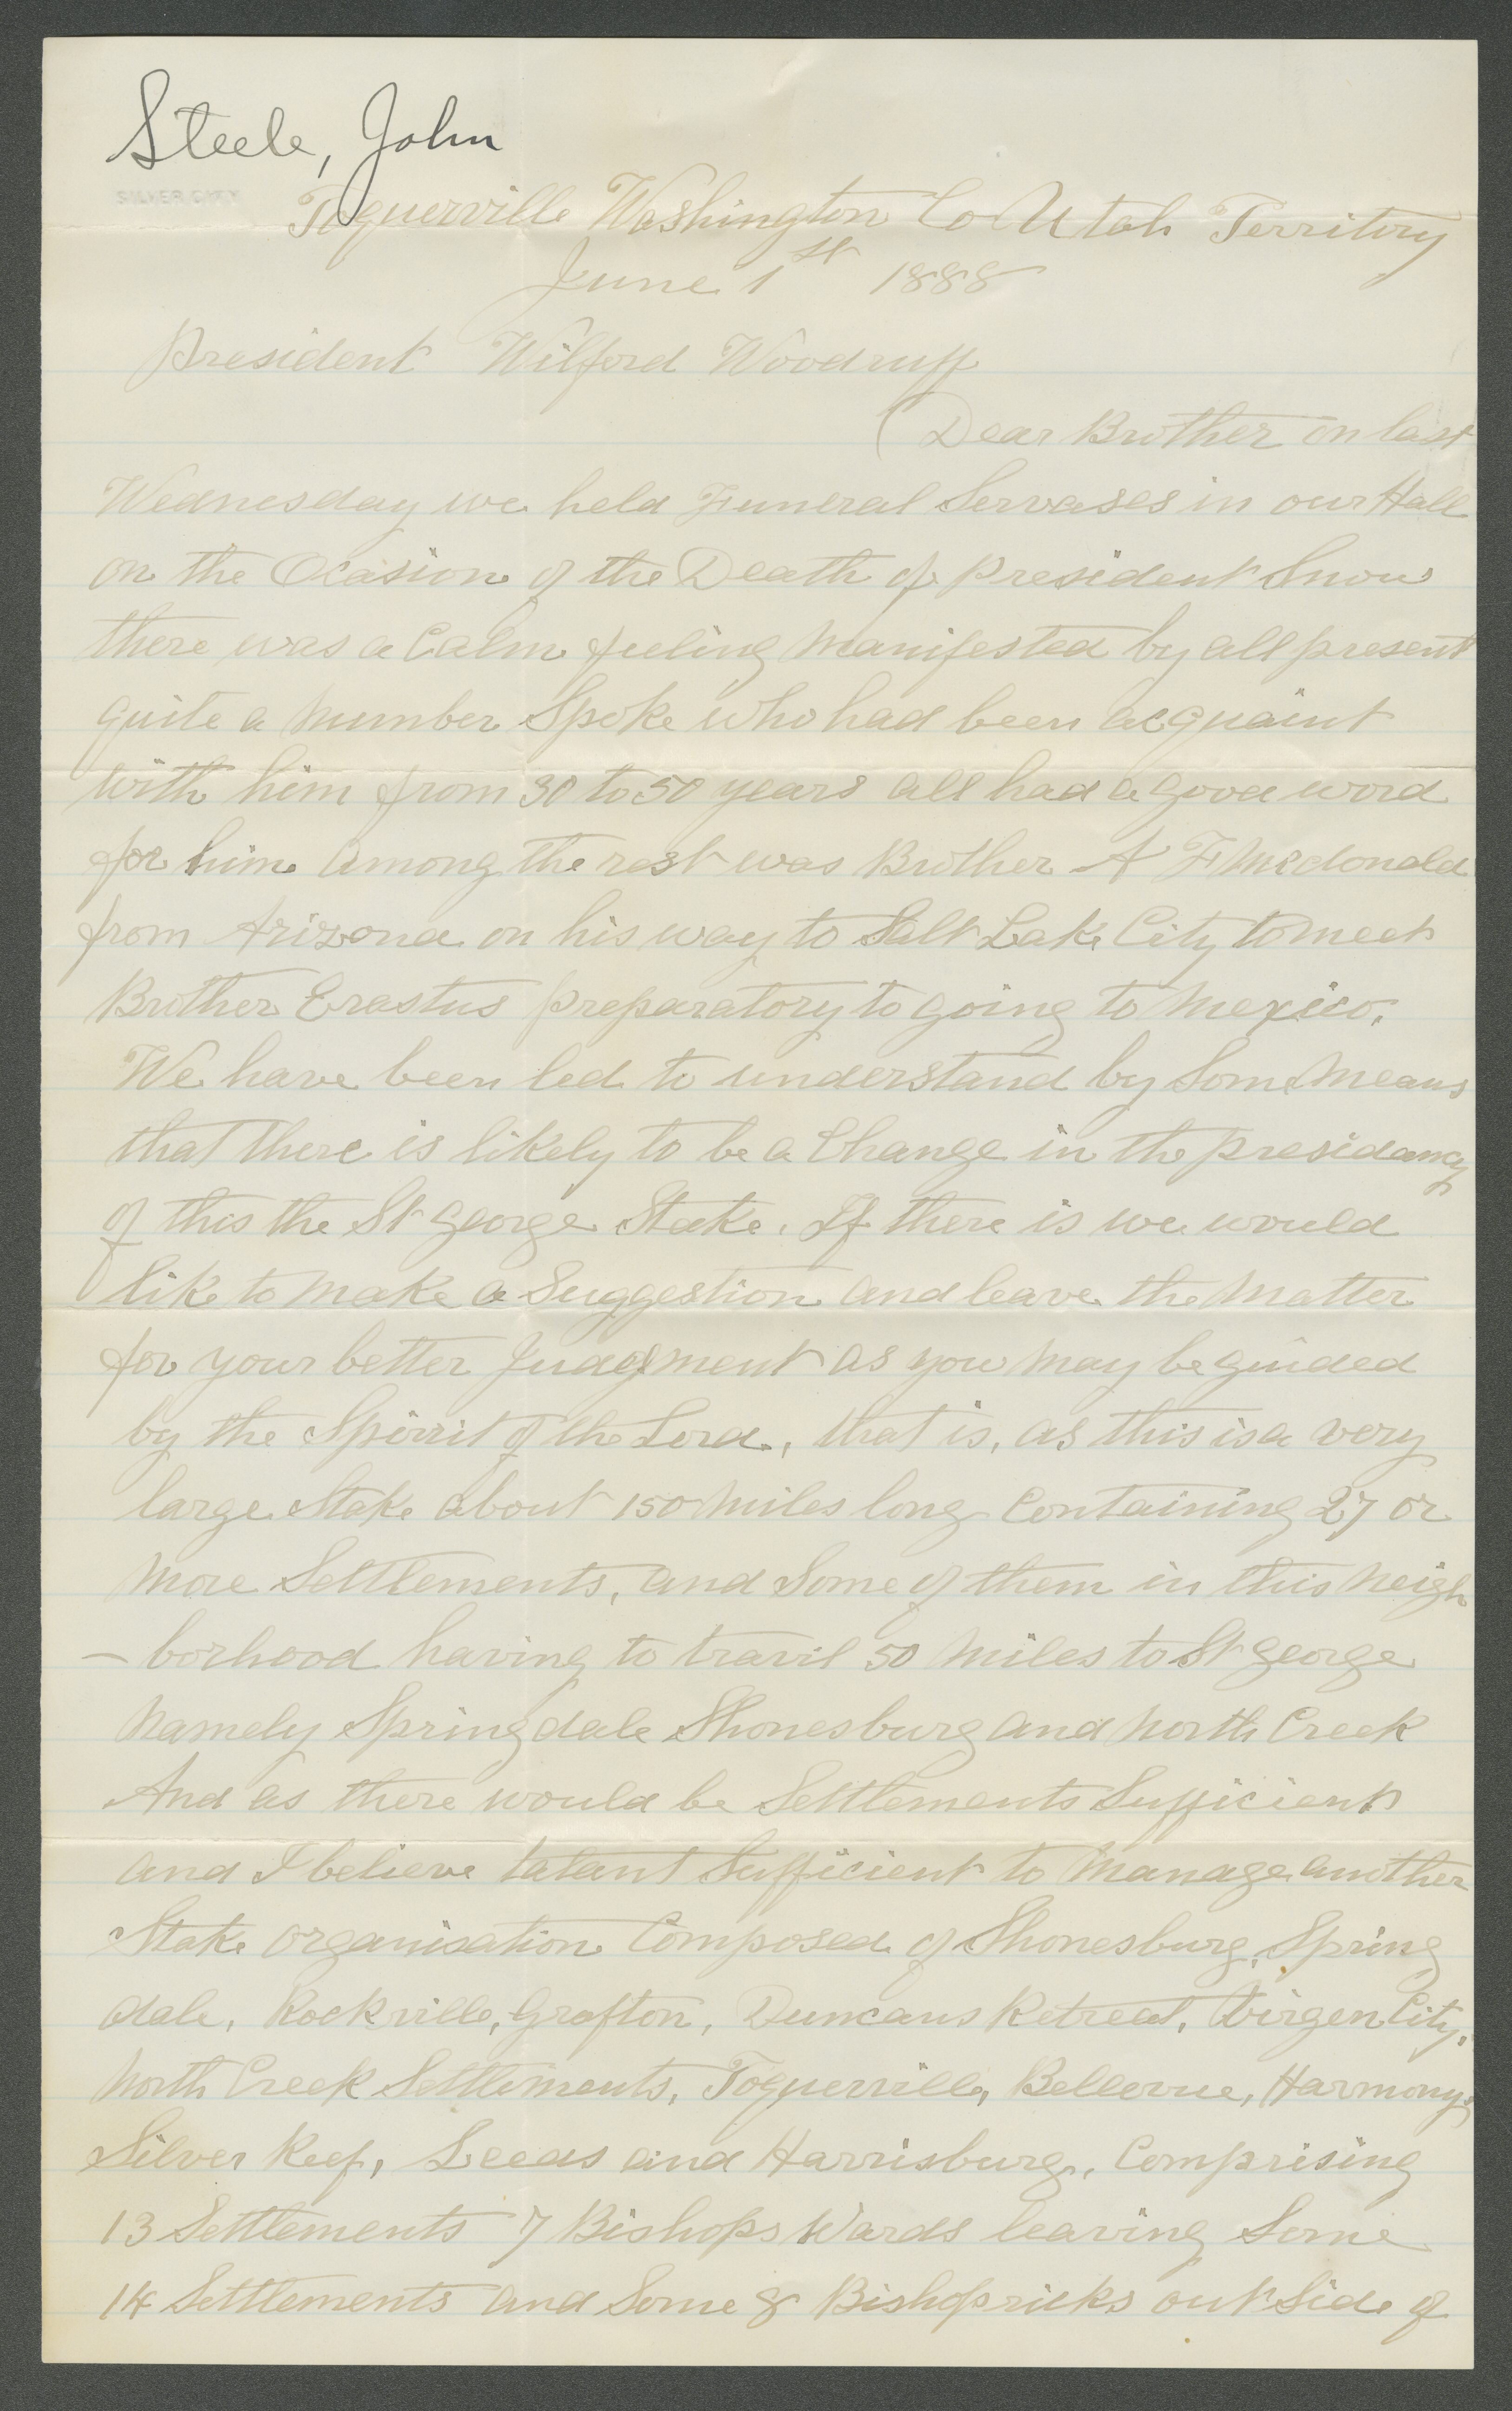 Steele, John
SILVER CITY
Toquerville Washington Co Utah Territory
June 1st 1888
President Wilford Woodruff
Dear Brother on last
Wednesday we held Funeral Servases in our Hall
on the Ocasion of the Death of President Snow
there was a Calm feeling Manifested by all present
quite a Number Spoke who had been acquaint
with him from 30 to 50 years all had a good word
for him among the rest was Brother A F Mcdonald
from Arizona on his way to Salt Lake City to meet
Brother Erastus preparatory to going to Mexico.
We have been led to understand by Some Means
that there is likely to be a Change in the presidancy
of this the St George Stake. If there is we would
like to Make a Suggestion and leave the Matter
for your better Judgment as you May be guided
by the Spirrit of the Lord, that is, as this is a very
large Stake about 150 Miles long Containing 27 or
More Settlements, and Some of them in this Neigh
-borhood having to travil 50 Miles to St George
Namely Springdale Shonesburg and North Creek
And as there would be Settlements Sufficient
and I believe talant Sufficient to Manage another
Stake organisation Composed of Shonesburg, Spring
dale, Rockville, Grafton, Duncans Retreat, Virgen City,
North Creek Settlements, Toquerville, Bellevue, Harmony,
Silver Reef, Leeds and Harrisburg, Comprising
13 Settlements 7 Bishops Wards leaving Some
14 Settlements and Some 8 Bishopricks out Side of